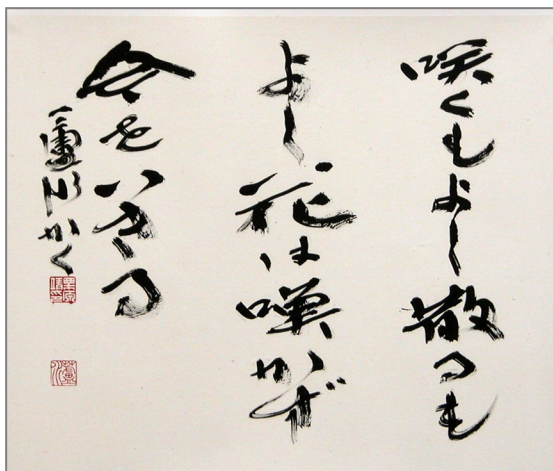 咲くもよし散るも
よし花は嘆かず
今をいきる
かく